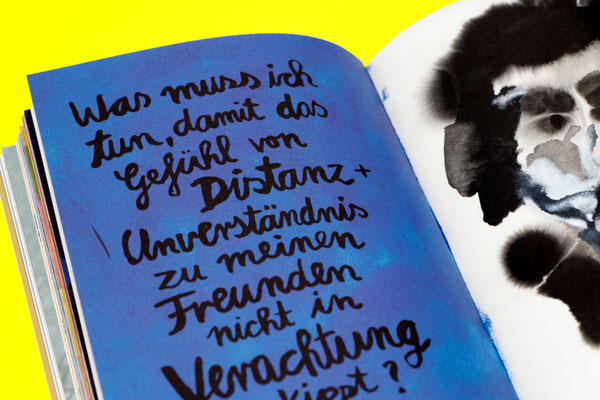 Was muss ich
tun, damit das
Gefühl von
Distanz +
Unverständnis
zu meinen
Freunden
nicht in
Verachtung
kippt?